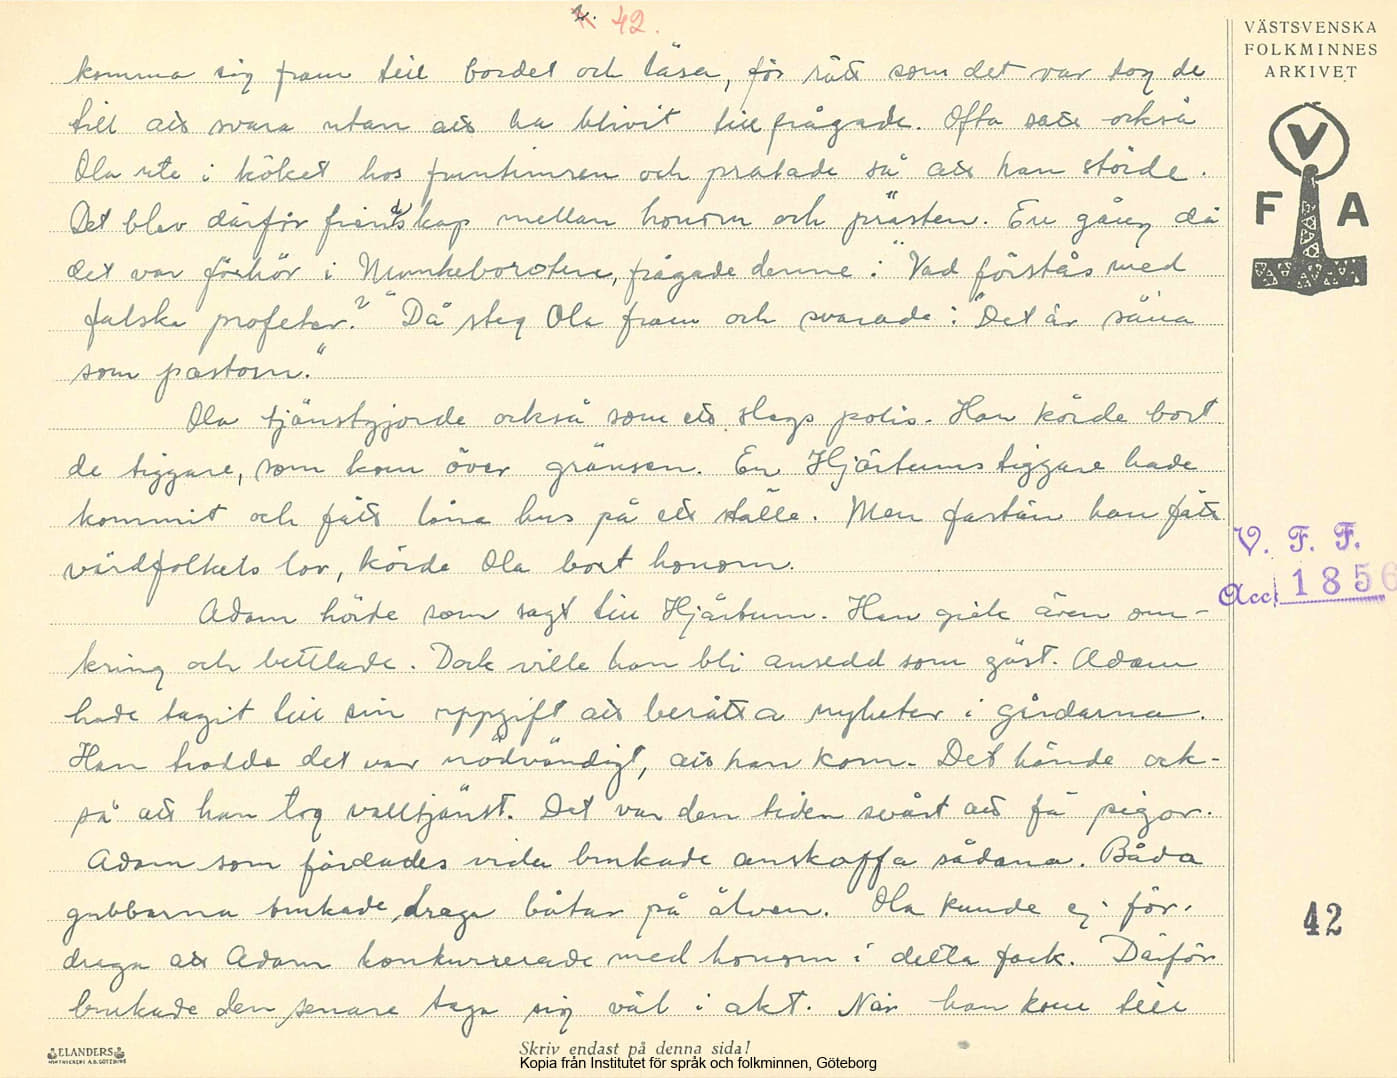 42.
VÄSTSVENSKA
FOLKMINNES
ARKIVET
V
F A
komma sig fram till bordet och läsa, för rätt som det var tog de
till att svara utan att ha blivit tillfrågade. Ofta satt också
Ola ute i köket hos fruntimren och pratade så att han störde.
Det blev därför fiendskap mellan honom och prästen. En gång då
det var förhör i Munkeborotere, frågade denne: "Vad förstås med
falska profeter?" Då steg Ola fram och svarade: "Det är såna
som pastorn."
Ola tjänstgjorde också som ett slags polis. Han körde bort
de tiggare, som kom över gränsen. En Hjärtums tiggare hade
kommit och fått låna hus på ett ställe. Men fastän han fått
värdfolkets lov, körde Ola bort honom.
Adam hörde som sagt till Hjärtum. Han gick även om-
kring och bettlade. Dock ville han bli ansedd som gäst. Adam
hade tagit till sin uppgift att berätta nyheter i gårdarna.
Han trodde det var nödvändigt, att han kom. Det hände ock-
så att han tog valltjänst. Det var den tiden svårt att få pigor.
Adam som färdades vida brukade anskaffa sådana. Båda
gubbarna brukade draga båtar på älven. Ola kunde ej för-
draga att Adam konkurrerade med honom i detta fack. Därför
brukade den senare taga sig väl i akt. När han kom till
V. F. F.
Acc. 1856
42
ELANDERS
Skriv endast på denna sida!
Kopia från Institutet för språk och folkminnen, Göteborg